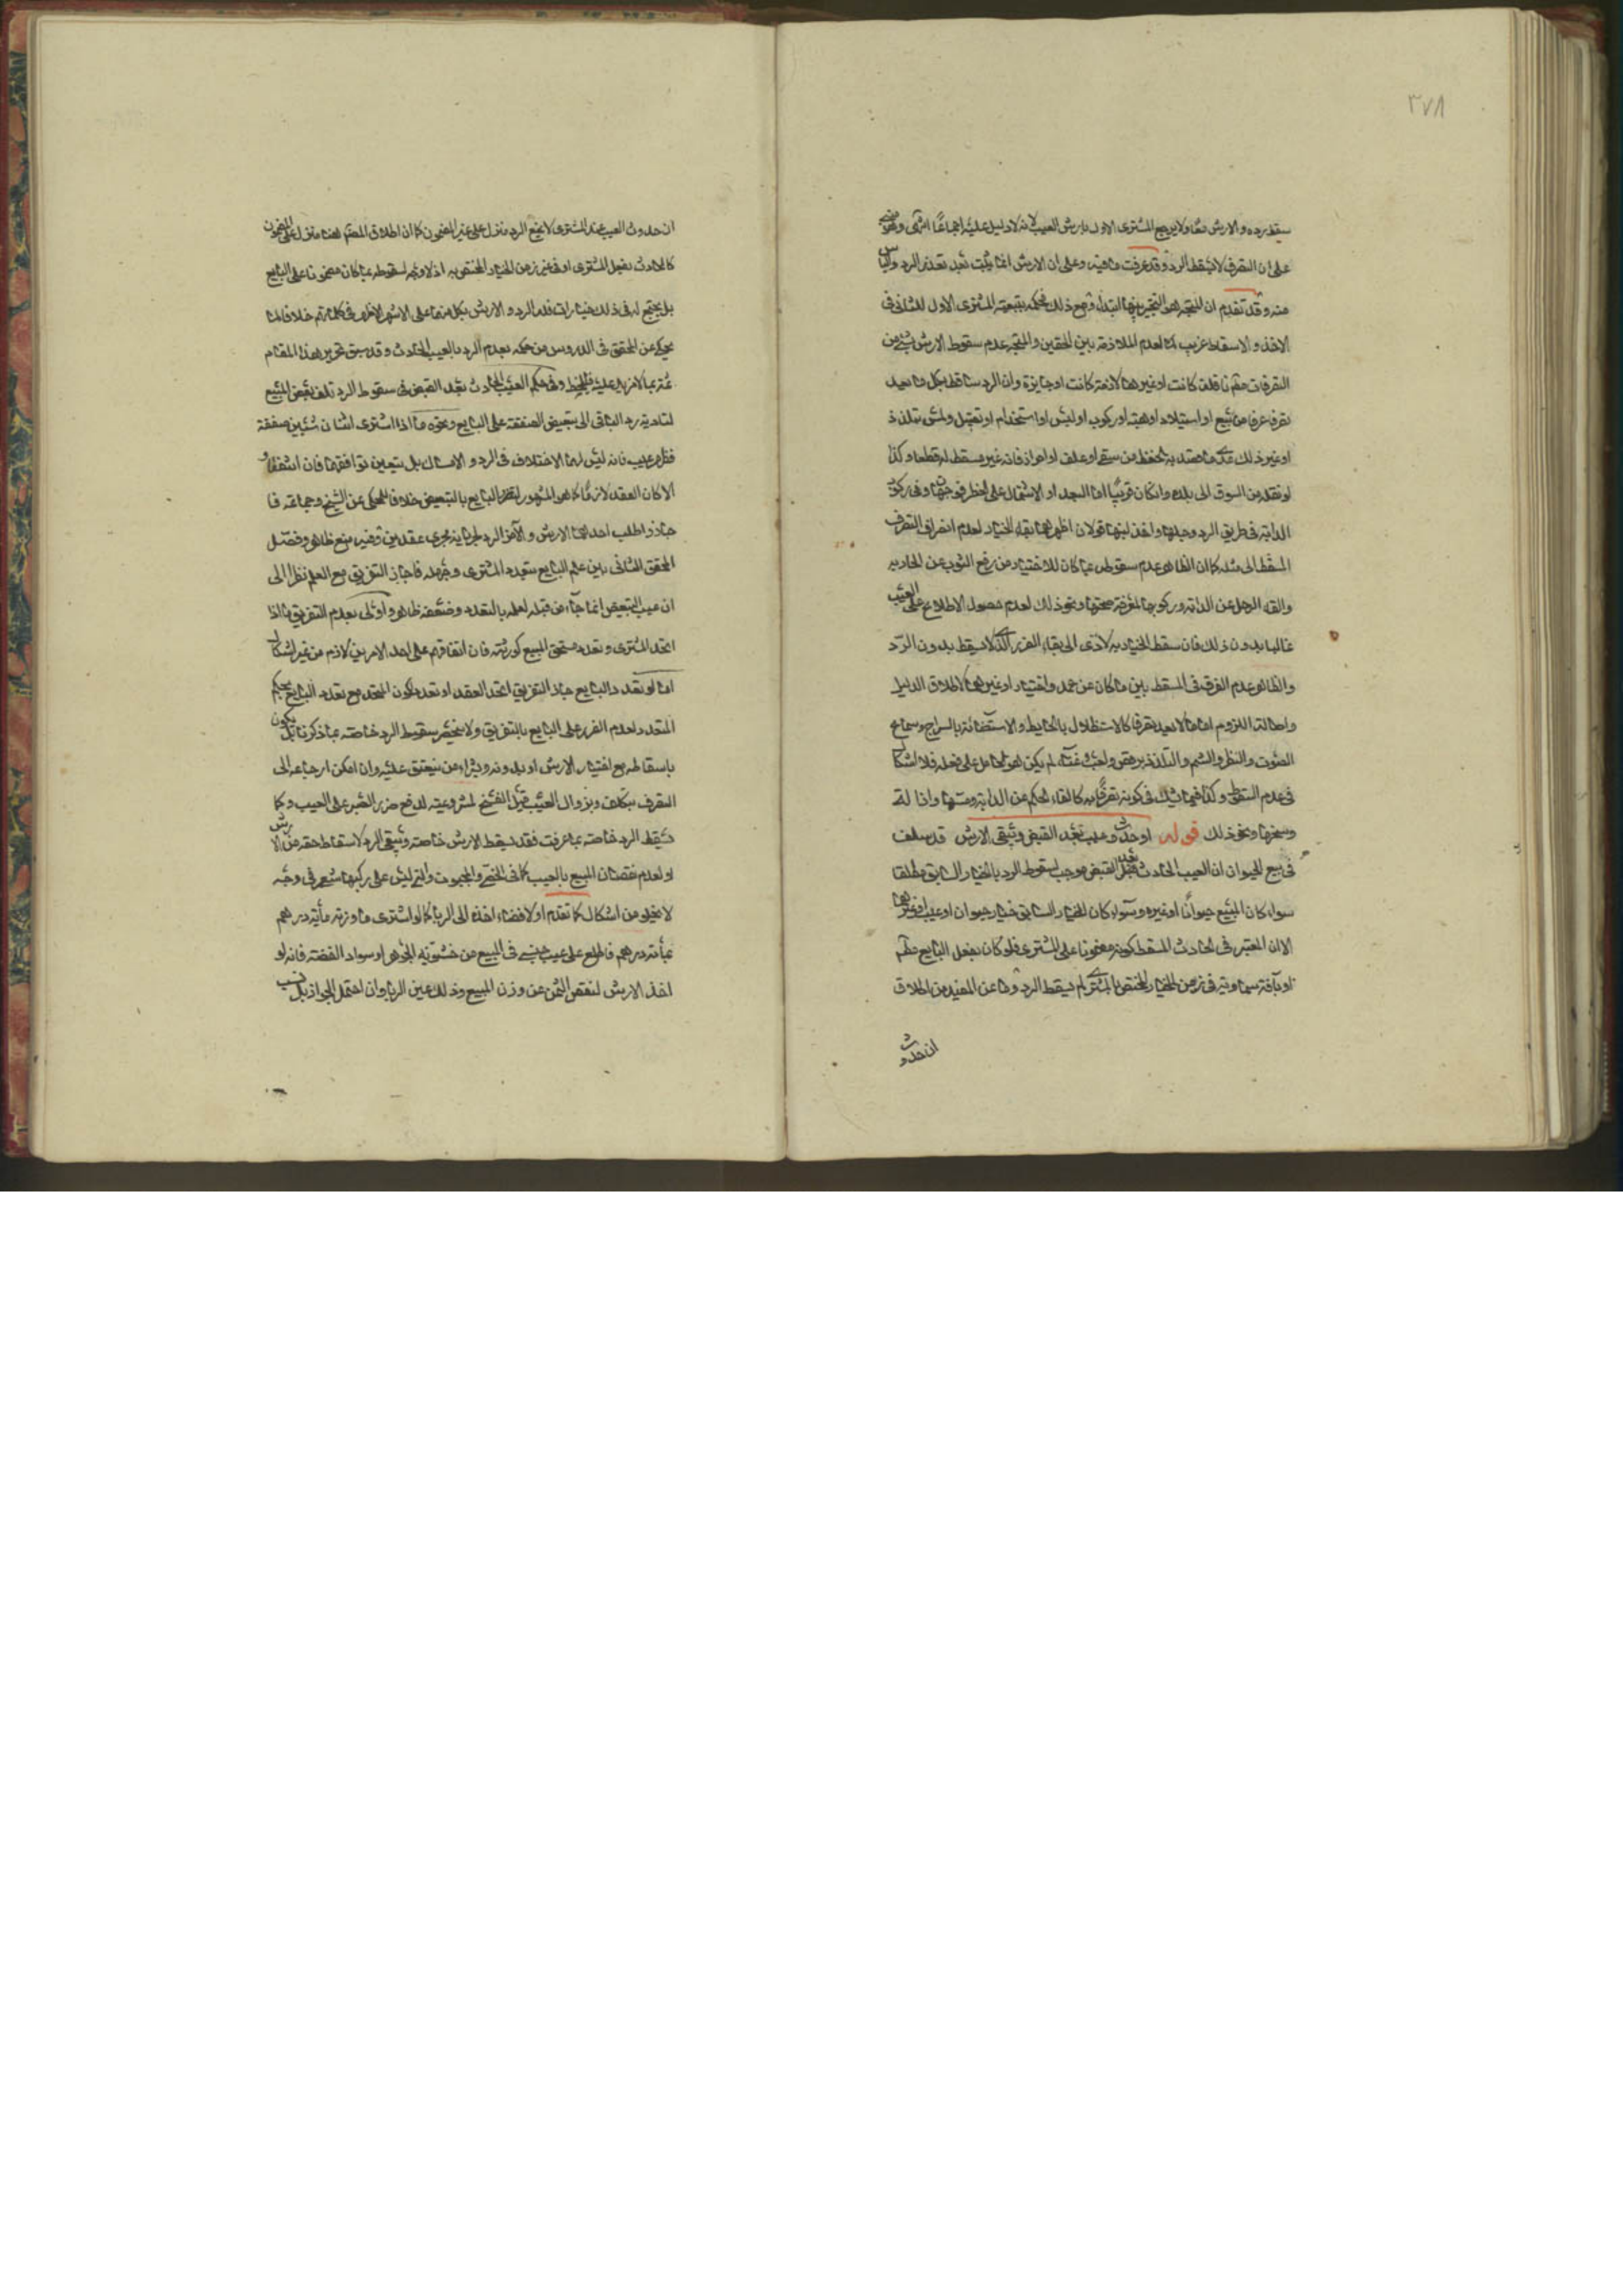 ٣٧٨
سقط رده والارش معا ولا يرجع المشترى الاول بارش العيب لانه لا دليل عليه اجماعا انتهى وهو
على ان التصرف لا يسقط الرد وقد عرفت ما فيه وعلى ان الارش انما يثبت بعد تعذر الرد
منه وقد تقدم ان المتجه هو التخيير بينهما ابتداء ومع ذلك فحكمه بتبعية المشترى الاول للثانى فى
الاخذ والاسقاط غريب لعدم الملازمة بين الحقين والمتجه عدم سقوط الارش بشئ من
التصرفات مطلقا ناقلة كانت او غيرها لازمة كانت او جايزة وان الرد ساقط بكل ما يعد
تصرفا عرفا من بيع او استيلاد او هبة او ركوب او لبس او استخدام او تقبيل ولمس بتلذذ
او غير ذلك عدى ما قصد به الحفظ من سقى او علف او احراز فانه غير مسقط له قطعا وكذا
لو نقله من السوق الى بلده وانكان قريبا اما البعد او الاشتمال على الخطر فوجهان وفى ركوب
الدابة فى طريق الرد وحلبها واخذ لبنها قولان اظهرهما بقاء الخيار لعدم انصراف التصرف
المسقط الى مثله كما ان الظاهر عدم سقوطه بما كان للاختبار من رفع الثوب عن الجارية
والقاء الرحل عن الدابة وركوبها لمعرفة صحتها ونحو ذلك لعدم حصول الاطلاع على العيب
غالبا بدون ذلك فان سقط الخيار به لادى الى بقاء الضرر الذى لا يسقط بدون الرد
والظاهر عدم الفرق فى المسقط بين ما كان عن عمد واختيار او غيرهما لاطلاق الدليل
واصالة اللزوم اما ما لا يعد تصرفا كالاستظلال بالحايط والاستضائة بالسراج وسماع
الصوت والنظر والشم والتلذذ برقص ولعب وغناء لم يكن هو الحامل على فعله فلا اشكال
فى عدم السقوط وكذا فيما شك فى كونه تصرفا به كالقاء لجم عن الدابة ومسها وازالة
وسخها ونحو ذلك قوله او حدث عيب بعد القبض ويبقى الارش قد سلف
فى بيع الحيوان ان العيب الحادث بعد القبض موجب لسقوط الرد بالخيار السابق مطلقا
سواء كان المبيع حيوانا او غيره وسواء كان الخيار السابق خيار حيوان او عيب او غيرها
الا ان المعتبر فى الحادث المسقط كونه مضمونا على المشترى فلو كان بفعل البايع مطلقا
او بآفة سماوية فى زمن الخيار المختص بالمشترى لم يسقط الرد وما عن المفيد من اطلاق
ان حدوث
ان حدوث العيب عند المشترى لا يمنع الرد منزل على غير المضمون كما ان اطلاق المصنف هنا منزل على المضمون
كالحادث بفعل المشترى او فى غير زمن الخيار المختص به اذ لا وجه لسقوطه بما كان مضمونا على البايع
بل يجتمع له فى ذلك خياران فله الرد والارش بكل منهما على الاشهر الاظهر فى كلماتهم خلافا لما
يحكى عن المحقق فى الدروس من حكمه بعدم الرد بالعيب الحادث وقد سبق تحرير هذا المقام
ثمة بما لا مزيد عليه فليلحظ وفى حكم العيب الحادث بعد القبض فى سقوط الرد تلف بعض المبيع
لتاديته رد الباقى الى تبعيض الصفقة على البايع ونحوه ما اذا اشترى اثنان شيئين صفقة
فظهر عيب فانه ليس لهما الاختلاف فى الرد والامساك بل يتعين توافقهما فان اتفقا و
الا كان العقد لازما كما هو المشهور لتضرر البايع بالتبعيض خلافا للمحكى عن الشيخ وجماعة فا
جازوا طلب احدهما الارش والآخر الرد لجريانه مجرى عقدين وفيه منع ظاهر وفصل
المحقق الثانى بين علم البايع بتعدد المشترى وجهله فاجاز التفريق مع العلم نظرا الى
ان عيب التبعيض انما جاء من قبله لعلمه بالتعدد وضعفه ظاهر واولى بعدم التفريق ما اذا
اتحد المشترى وتعدد مستحق المبيع كورثته فان اتفاقهم على احد الامرين لازم من غير اشكال
اما لو تعدد البايع جاز التفريق اتحد العقد او تعدد لكون المتحد مع تعدد البايع بحكم
المتعدد لعدم الضرر على البايع بالتفريق ولا ينحصر سقوط الرد خاصة بما ذكرنا بل يكون
باسقاطه مع اختيار الارش او بدونه وبشراء من ينعتق عليه وان امكن ارجاعه الى
التصرف بتكلف وبزوال العيب قبل الفسخ لمشروعيته لدفع ضرر الصبر على العيب وكما
يسقط الرد خاصة بما عرفت فقد يسقط الارش خاصة ويبقى الرد لاسقاط حقه من الارش
او لعدم نقصان المبيع بالعيب كما فى الخصى والمجبوب والتى ليس على ركبها شعر فى وجه
لا يخلو من اشكال كما تقدم او لافضاء اخذه الى الربا كما لو اشترى ما وزنه مأية درهم
بمأية درهم فاطلع على عيب جنسى فى المبيع من خشونة الجوهر او سواد الفضة فانه لو
اخذ الارش لنقص الثمن عن وزن المبيع وذلك عين الربا وان احتمل الجواز بل نسب